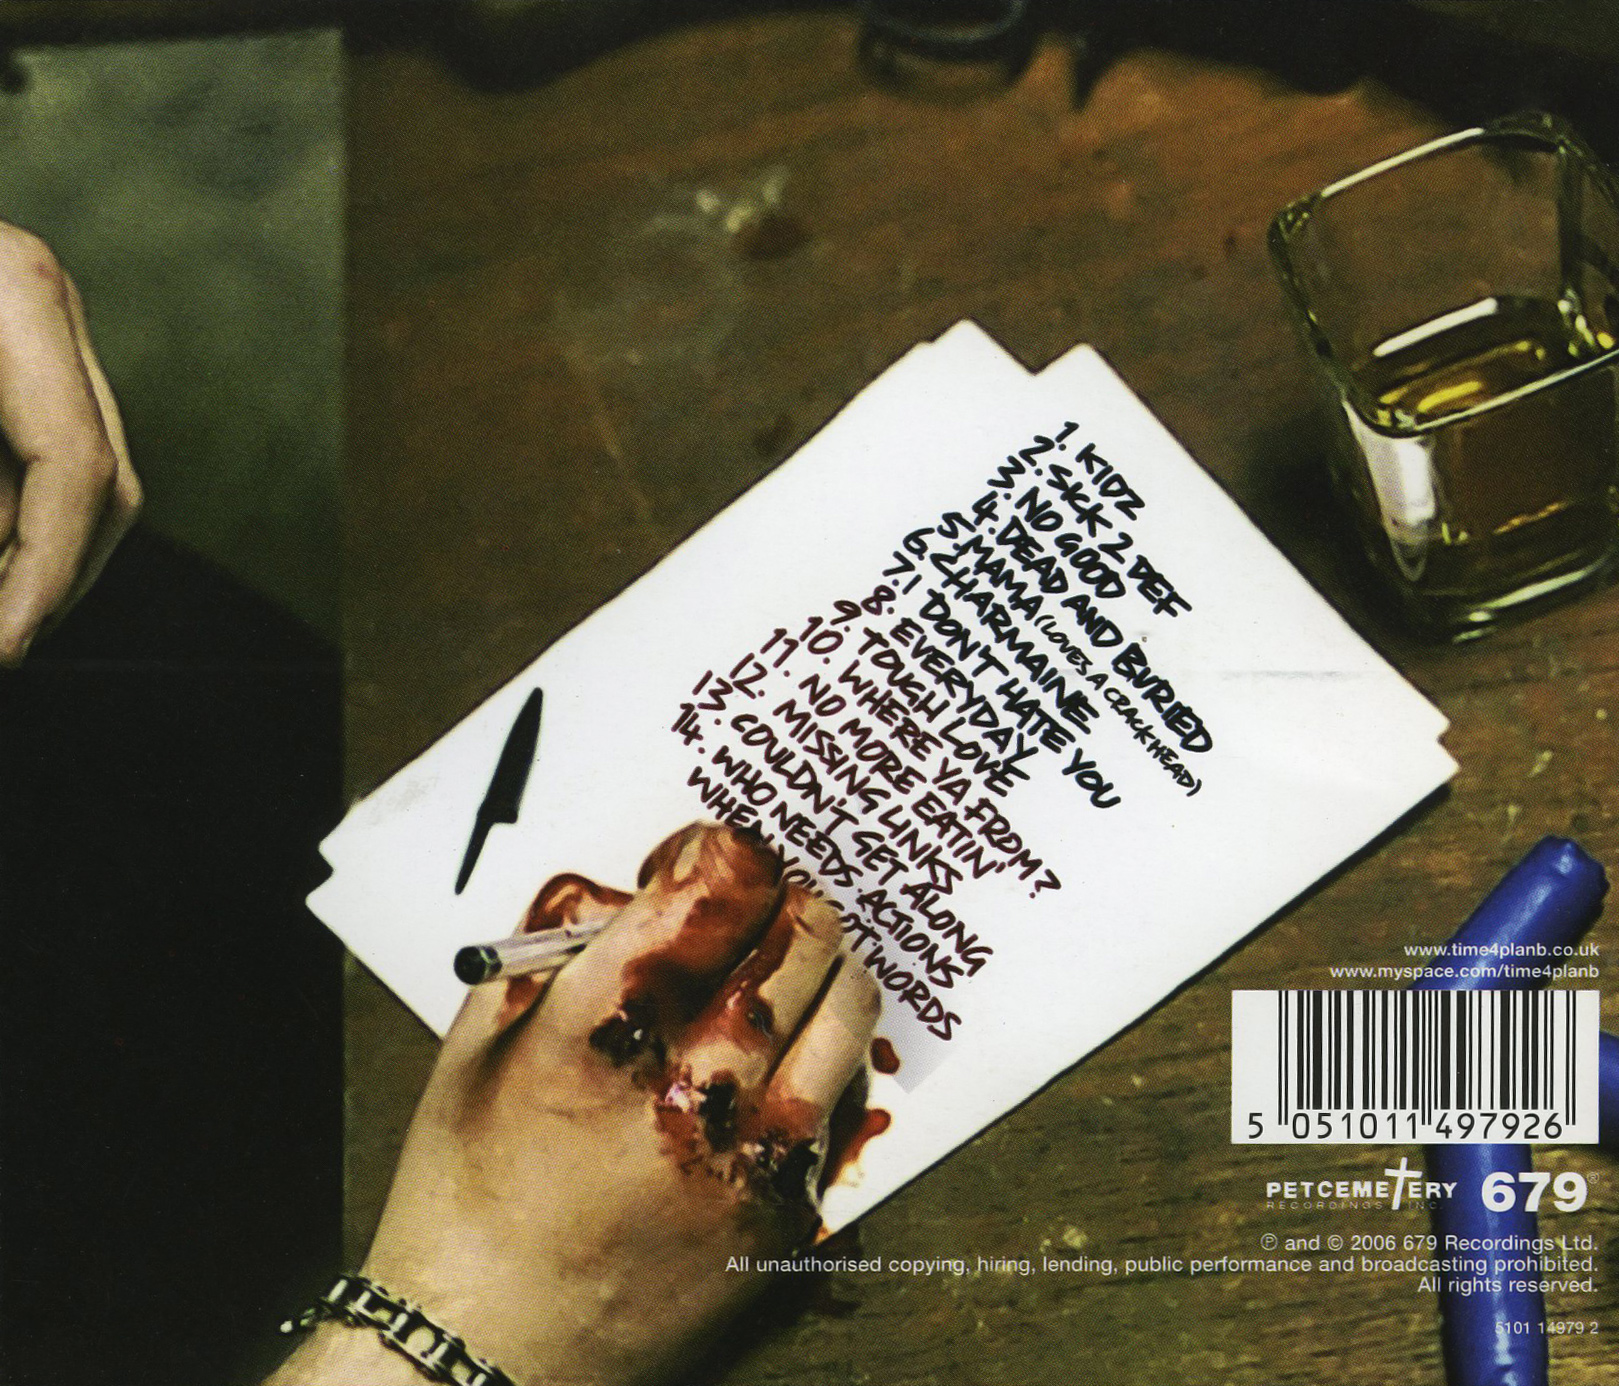 1. KIDZ
2. SICK 2 DEF
3. NO GOOD
4. DEAD AND BURIED
5. MAMA (LOVES A CRACKHEAD)
6. CHARMAINE
7. I DON'T HATE YOU
8. EVERYDAY
9. TOUGH LOVE
10. WHERE YA FROM?
11. NO MORE EATIN'
12. MISSING LINKS
13. COULDN'T GET ALONG
14. WHO NEEDS ACTIONS
WHEN YOU GOT WORDS
www.time4planb.co.uk
www.myspace.com/time4planb
5 051011 497926
PET CEMETERY 679®
RECORDINGS INC.
℗ and © 2006 679 Recordings Ltd.
All unauthorised copying, hiring, lending, public performance and broadcasting prohibited.
All rights reserved.
5101 14979 2